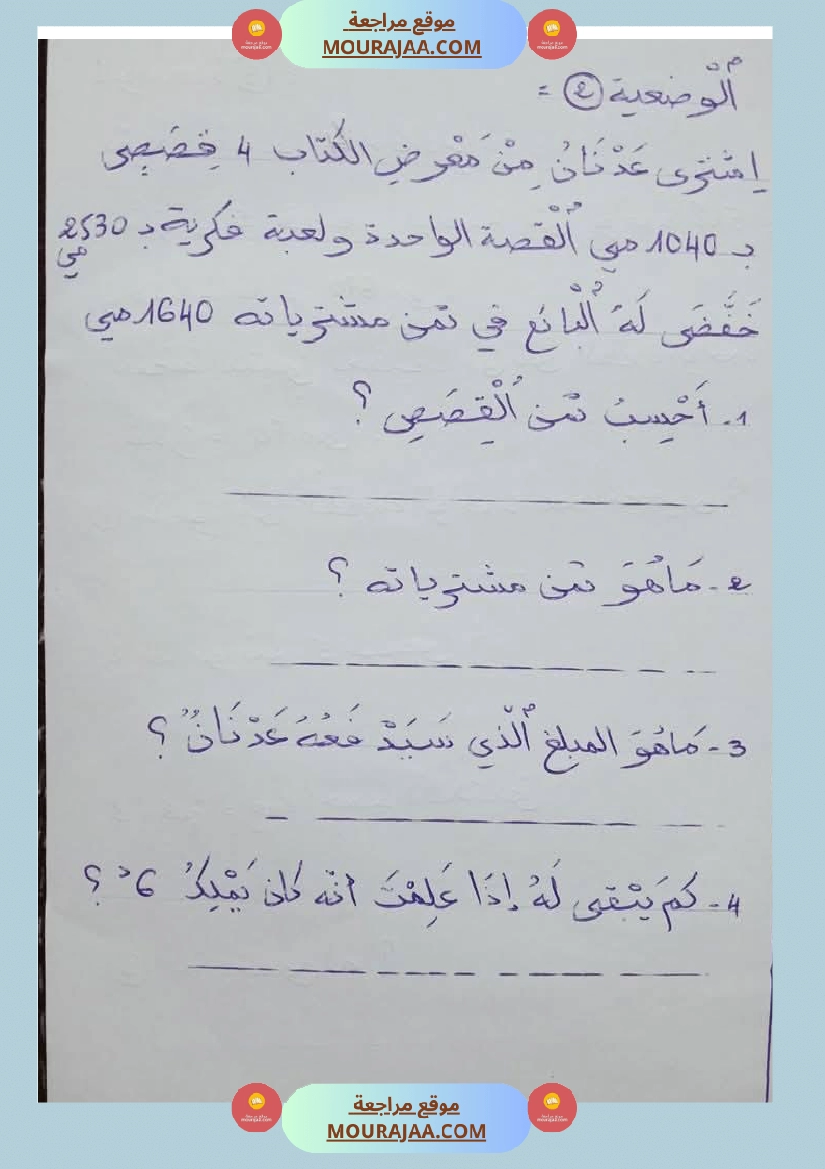 موقع مراجعة
MOURAJAA.COM
اُلْوضعية ② =
اِشترى عَدْنَانُ مِنْ مَعْرضِ الكُتاب 4 قِصَصٍ
بـ 1040 مي اُلْقصة الواحدة ولعبة فكرية بـ 2530 مي
خَفَّضَ لَهُ اُلْبائع في ثمن مشترياته 1640 مي
1. أَحْسِبُ ثمن اُلْقِصَصِ ؟
2 - مَاهُوَ ثمن مشترياته ؟
3 - مَاهُوَ المبلغ اُلّذي سَيَدْفَعُهُ عَدْنَانُ ؟
4 - كم يَتْبقى لَهُ إِذَا عَلِمْتَ أنّه كان يَمْلِكُ 6د ؟
موقع مراجعة
MOURAJAA.COM